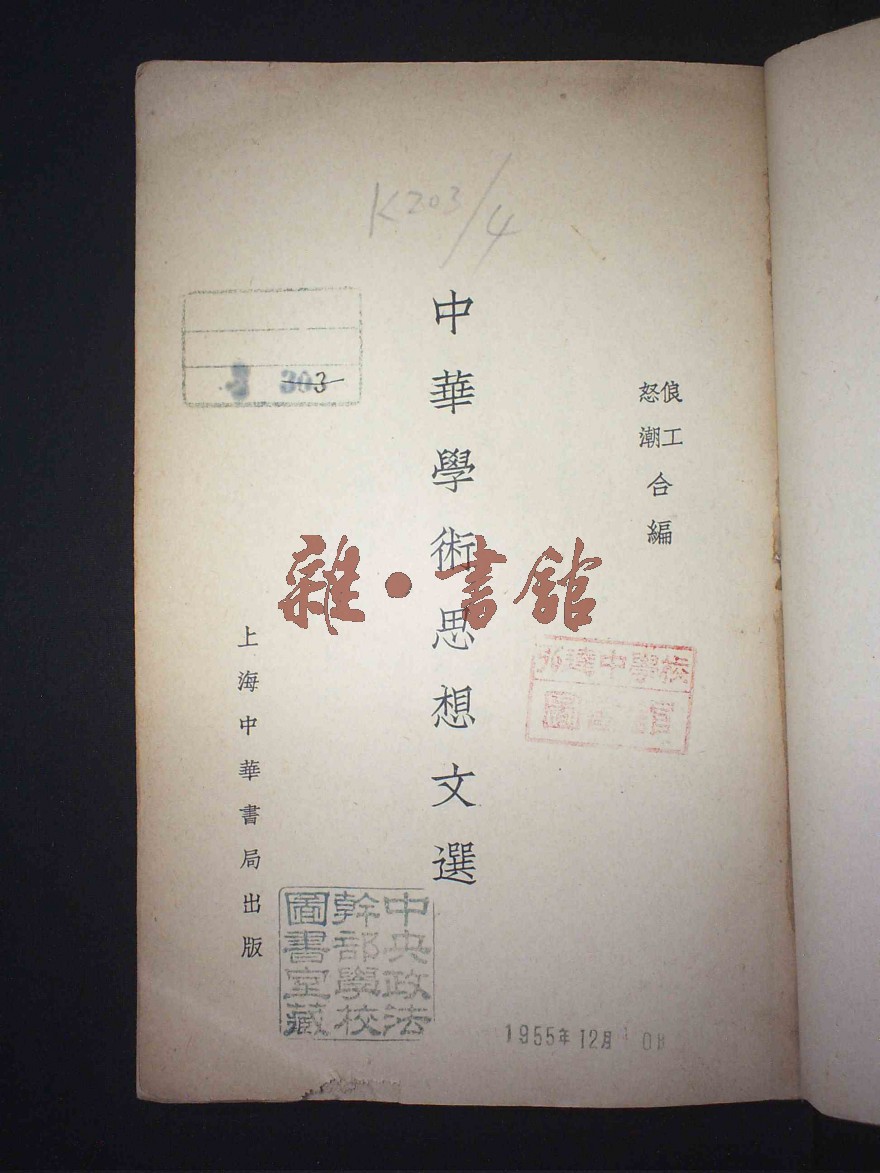 K203/4
303
俍工
怒潮
合編
中華學術思想文選
雜·書館
中學校
上海中華書局出版
中央政法
幹部學校
圖書室藏
1955年12月